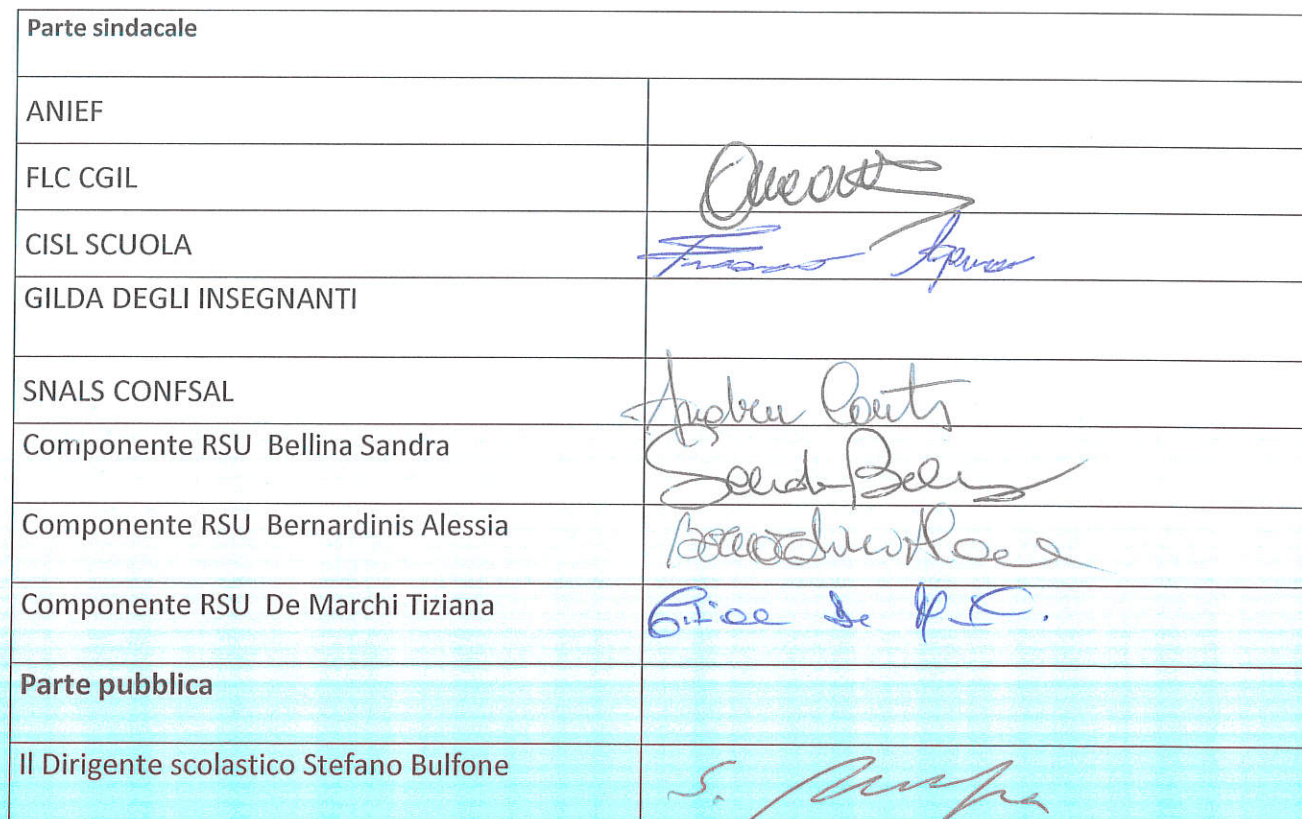 Parte sindacale
ANIEF
FLC CGIL
CISL SCUOLA
GILDA DEGLI INSEGNANTI
SNALS CONFSAL
Andrea
Componente RSU Bellina Sandra
Sandra
Componente RSU Bernardinis Alessia
Componente RSU De Marchi Tiziana
De
Parte pubblica
Il Dirigente scolastico Stefano Bulfone
S.